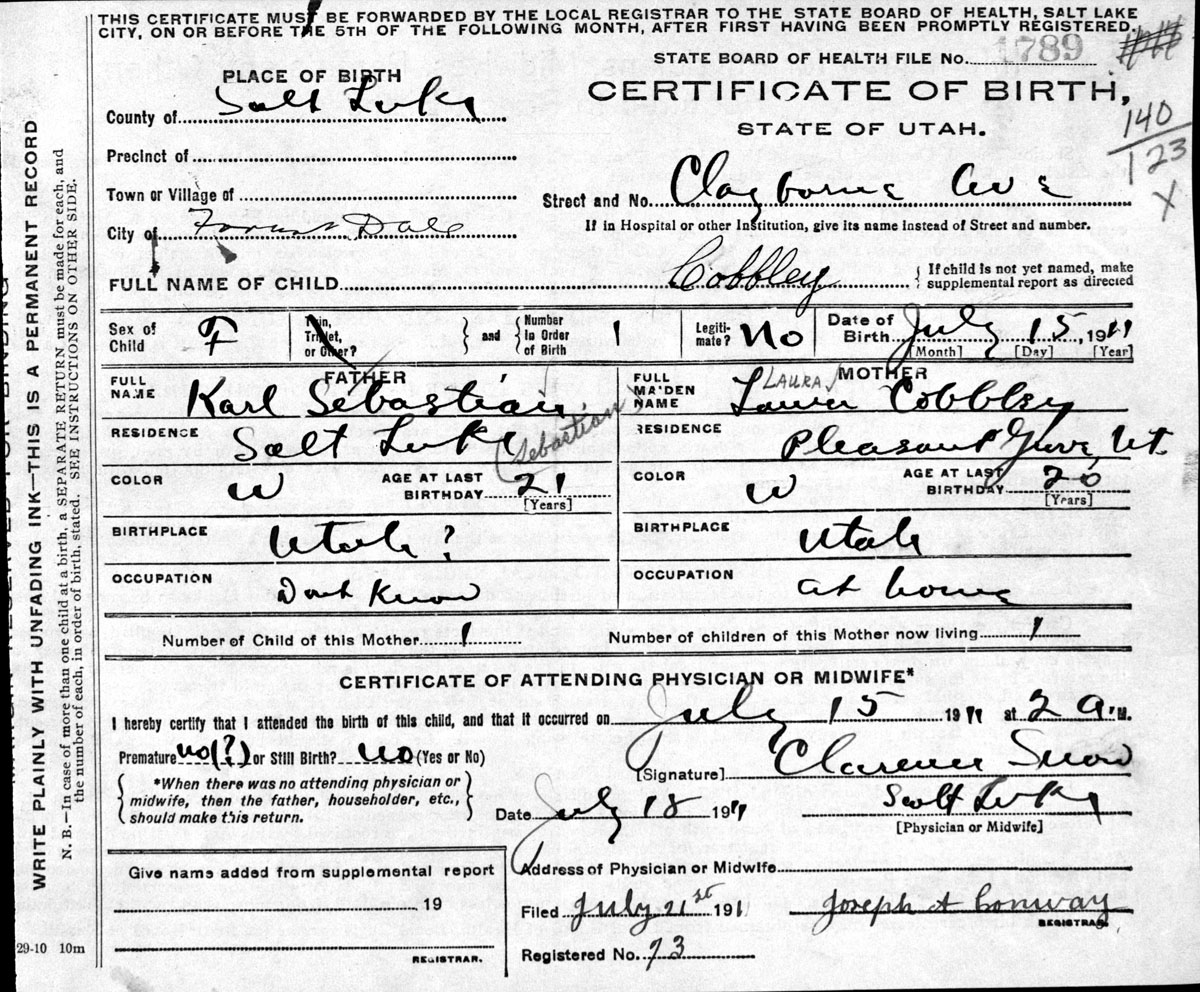 THIS CERTIFICATE MUST BE FORWARDED BY THE LOCAL REGISTRAR TO THE STATE BOARD OF HEALTH, SALT LAKE
CITY, ON OR BEFORE THE 5TH OF THE FOLLOWING MONTH, AFTER FIRST HAVING BEEN PROMPTLY REGISTERED.
STATE BOARD OF HEALTH FILE No. 1789
PLACE OF BIRTH
CERTIFICATE OF BIRTH,
STATE OF UTAH.
140
123
X
County of Salt Lake
Precinct of
Town or Village of
Street and No. Clayborne Ave
City of Forest Dale
If in Hospital or other Institution, give its name instead of Street and number.
FULL NAME OF CHILD Cobbley
{ If child is not yet named, make
supplemental report as directed
Sex of Child F
Twin, Triplet, or Other?
and
Number in Order of Birth 1
Legitimate? No
Date of Birth July 15, 1911
[Month] [Day] [Year]
FATHER
FULL NAME Karl Sebastian
(Sebastian)
RESIDENCE Salt Lake
COLOR W
AGE AT LAST BIRTHDAY 21
[Years]
BIRTHPLACE Utah?
OCCUPATION Dont Know
MOTHER
FULL MAIDEN NAME Laura Cobbley
LAURA
RESIDENCE Pleasant Grove, Ut.
COLOR W
AGE AT LAST BIRTHDAY 20
[Years]
BIRTHPLACE Utah
OCCUPATION at home
Number of Child of this Mother 1
Number of children of this Mother now living 1
CERTIFICATE OF ATTENDING PHYSICIAN OR MIDWIFE*
I hereby certify that I attended the birth of this child, and that it occurred on July 15 1911 at 2 A.M.
Premature no(?) or Still Birth? no (Yes or No)
[Signature] Clarence Snow
*When there was no attending physician or
midwife, then the father, householder, etc.,
should make this return.
Date July 18 1911
Salt Lake
[Physician or Midwife]
Address of Physician or Midwife
Give name added from supplemental report
19
REGISTRAR.
Filed July 21st 1911
Joseph A Conway
REGISTRAR.
Registered No. 73
29-10 10m
WRITE PLAINLY WITH UNFADING INK—THIS IS A PERMANENT RECORD
N. B.—In case of more than one child at a birth, a SEPARATE RETURN must be made for each, and
the number of each, in order of birth, stated. SEE INSTRUCTIONS ON OTHER SIDE.